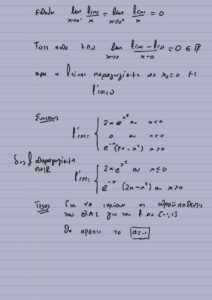 Επειδή lim x→0⁻ f(x)/x = lim x→0⁺ f(x)/x = 0
Τότε από lim x→0 f(x) − f(0) / x − 0 = 0 ∈ ℝ
άρα η f είναι παραγωγίσιμη στο x₀ = 0 με
f'(0) = 0
f'(x) = { 2x e^{x²} αν x < 0
0 αν x = 0
e^{-x}(2x − x²) αν x > 0
f παραγωγίσιμη
στο ℝ
f'(x) = { 2x e^{x²} αν x ≤ 0
e^{-x}(2x − x²) αν x > 0
Για να ισχύουν οι προϋποθέσεις
του Θ.Μ.Τ. για την f στο [-1,1]
Θα πρέπει το α=-1